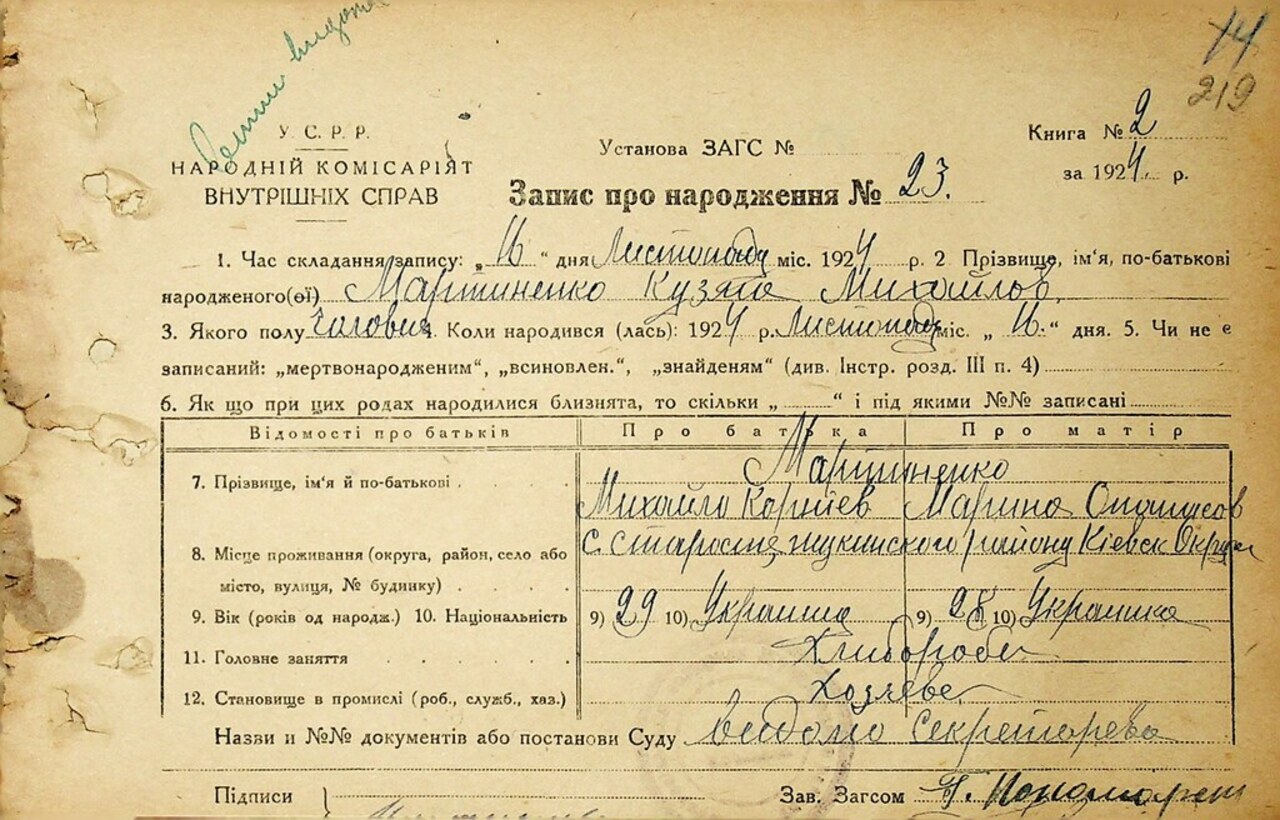 14
219
У. С. Р. Р.
НАРОДНІЙ КОМІСАРІЯТ
ВНУТРІШНІХ СПРАВ
Установа ЗАГС №
Книга № 2
за 1924 р.
Запис про народження № 23.
1. Час складання запису: „16“ дня Листопада міс. 1924 р. 2 Прізвище, ім'я, по-батькові
народженого(ої) Мартиненко Кузята Михайлов.
3. Якого полу Чоловіч 4. Коли народився (лась): 1924 р. Листопада міс. „16.“ дня. 5. Чи не є
записаний: „мертвонародженим“, „всиновлен.“, „знайденям“ (див. Інстр. розд. III п. 4)
6. Як що при цих родах народилися близнята, то скільки „ “ і під якими №№ записані
Відомості про батьків Про батька Про матір
7. Прізвище, ім'я й по-батькові Мартиненко
Михайло Корнієв Марина Опанасов
8. Місце проживання (округа, район, село або с. Староста района Кіевск Округи
місто, вулиця, № будинку)
9. Вік (років од народж.) 10. Національність 9) 29 10) Украинец 9) 28 10) Украинка
11. Головне заняття Хлибороби
12. Становище в промислі (роб., служб., хаз.) Хозяеве
Назви и №№ документів або постанови Суду Видомо Секретарева
Підписи Зав. Загсом